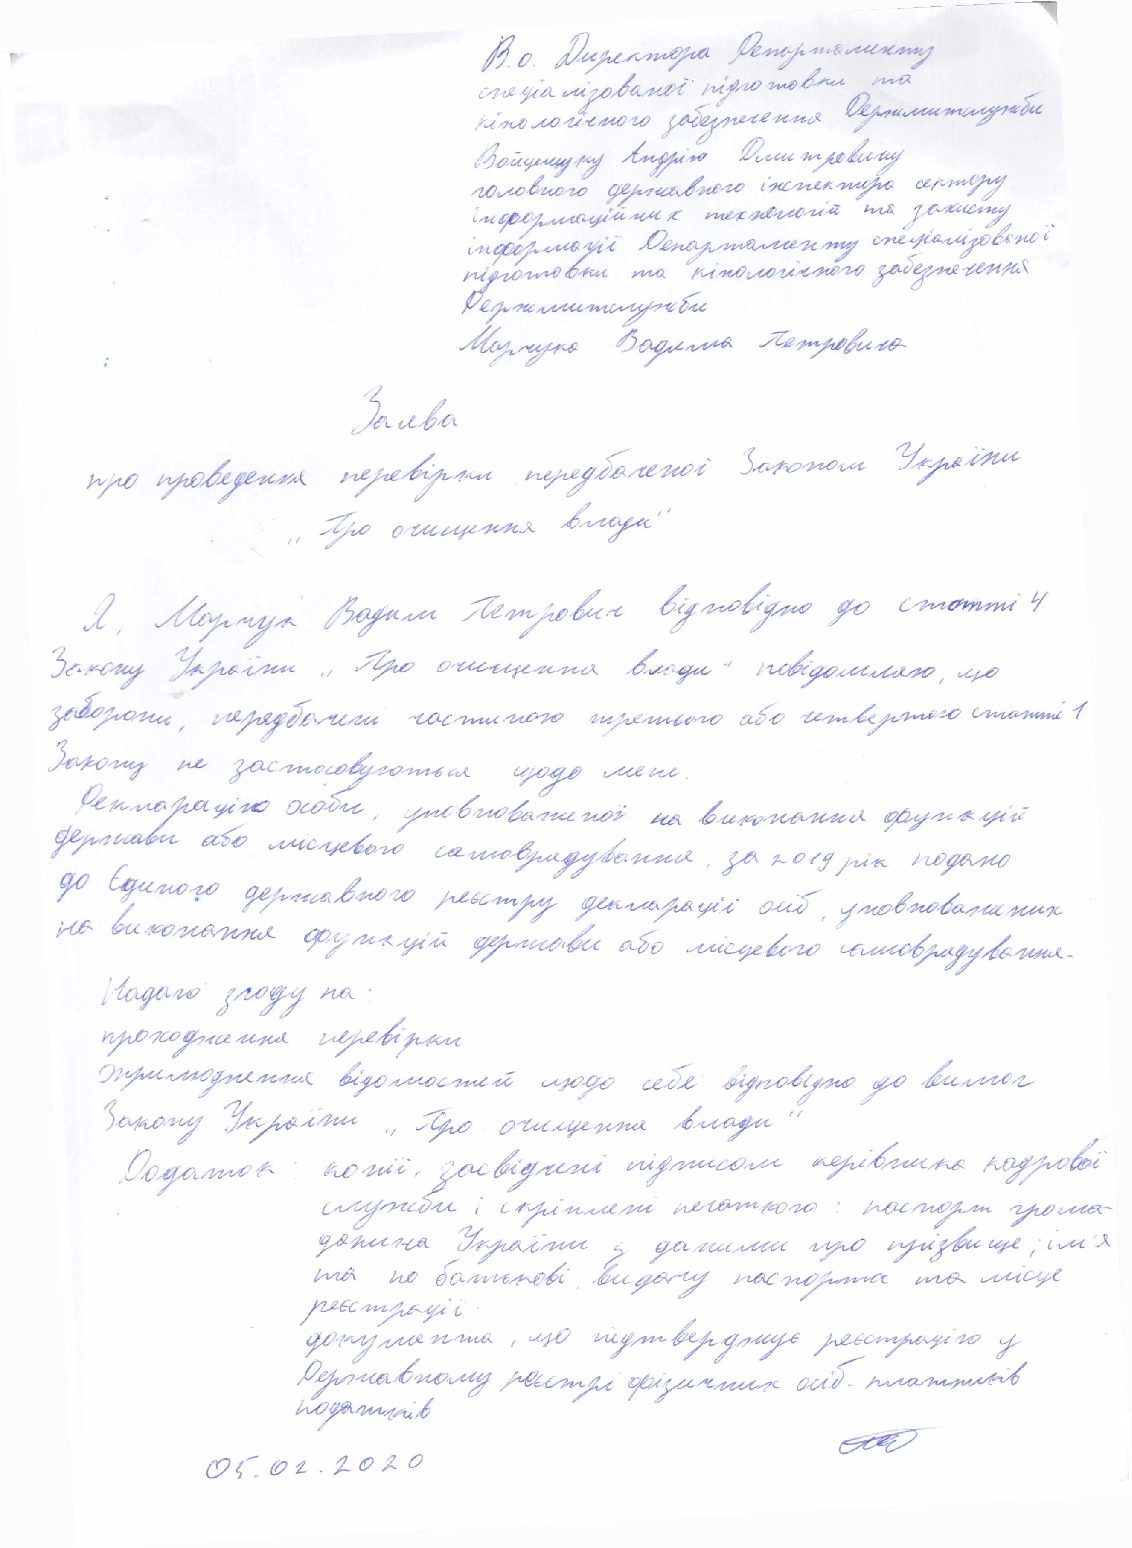 В.о. Директора Департаменту
спеціалізованої підготовки та
кінологічного забезпечення Держмитслужби
Войцещуку Андрію Дмитровичу
головного державного інспектора сектору
інформаційних технологій та захисту
інформації Департаменту спеціалізованої
підготовки та кінологічного забезпечення
Держмитслужби
Марчука Вадима Петровича
Заява
про проведення перевірки передбаченої Законом України
„Про очищення влади"
Я, Марчук Вадим Петрович відповідно до статті 4
Закону України „Про очищення влади" повідомляю, що
заборони, передбачені частиною третьою або четвертою статті 1
Закону не застосовуються щодо мене.
Декларацію особи, уповноваженої на виконання функцій
держави або місцевого самоврядування, за 2019 рік подано
до Єдиного державного реєстру декларації осіб, уповноважених
на виконання функцій держави або місцевого самоврядування.
Надаю згоду на:
проходження перевірки
оприлюднення відомостей щодо себе відповідно до вимог
Закону України „Про очищення влади"
Додаток: копії, засвідчені підписом керівника кадрової
служби і скріплені печаткою: паспорт грома-
дянина України з даними про прізвище, ім'я
та по батькові, видачу паспорта та місце
реєстрації
документа, що підтверджує реєстрацію у
Державному реєстрі фізичних осіб - платників
податків
05.02.2020